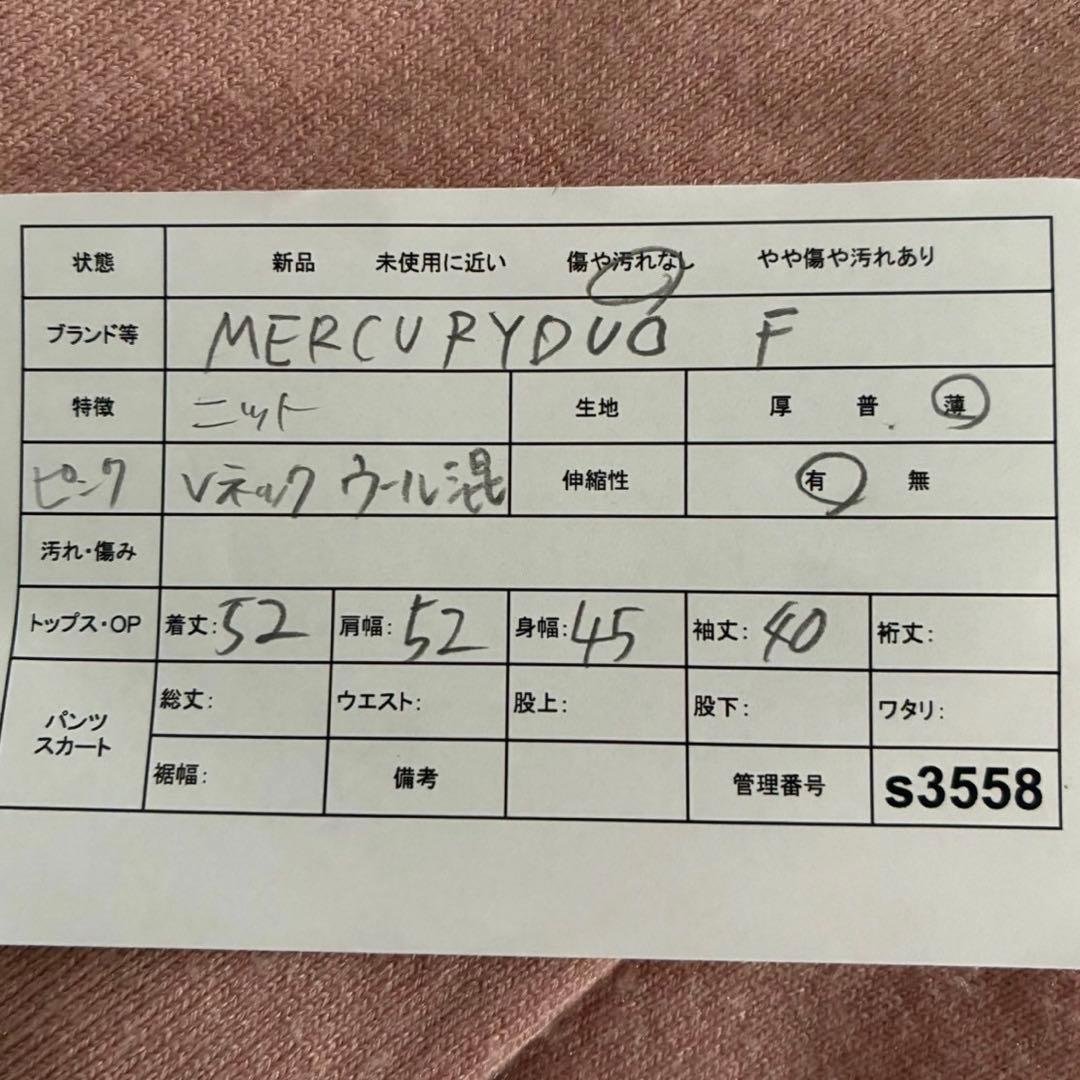 状態 新品 未使用に近い 傷や汚れなし やや傷や汚れあり
ブランド等 MERCURYDUO F
特徴 ニット 生地 厚 普 薄
ピンク Vネック ウール混 伸縮性 有 無
汚れ・傷み
トップス・OP 着丈:52 肩幅:52 身幅:45 袖丈:40 裄丈:
パンツ スカート 総丈: ウエスト: 股上: 股下: ワタリ:
裾幅: 備考 管理番号 s3558